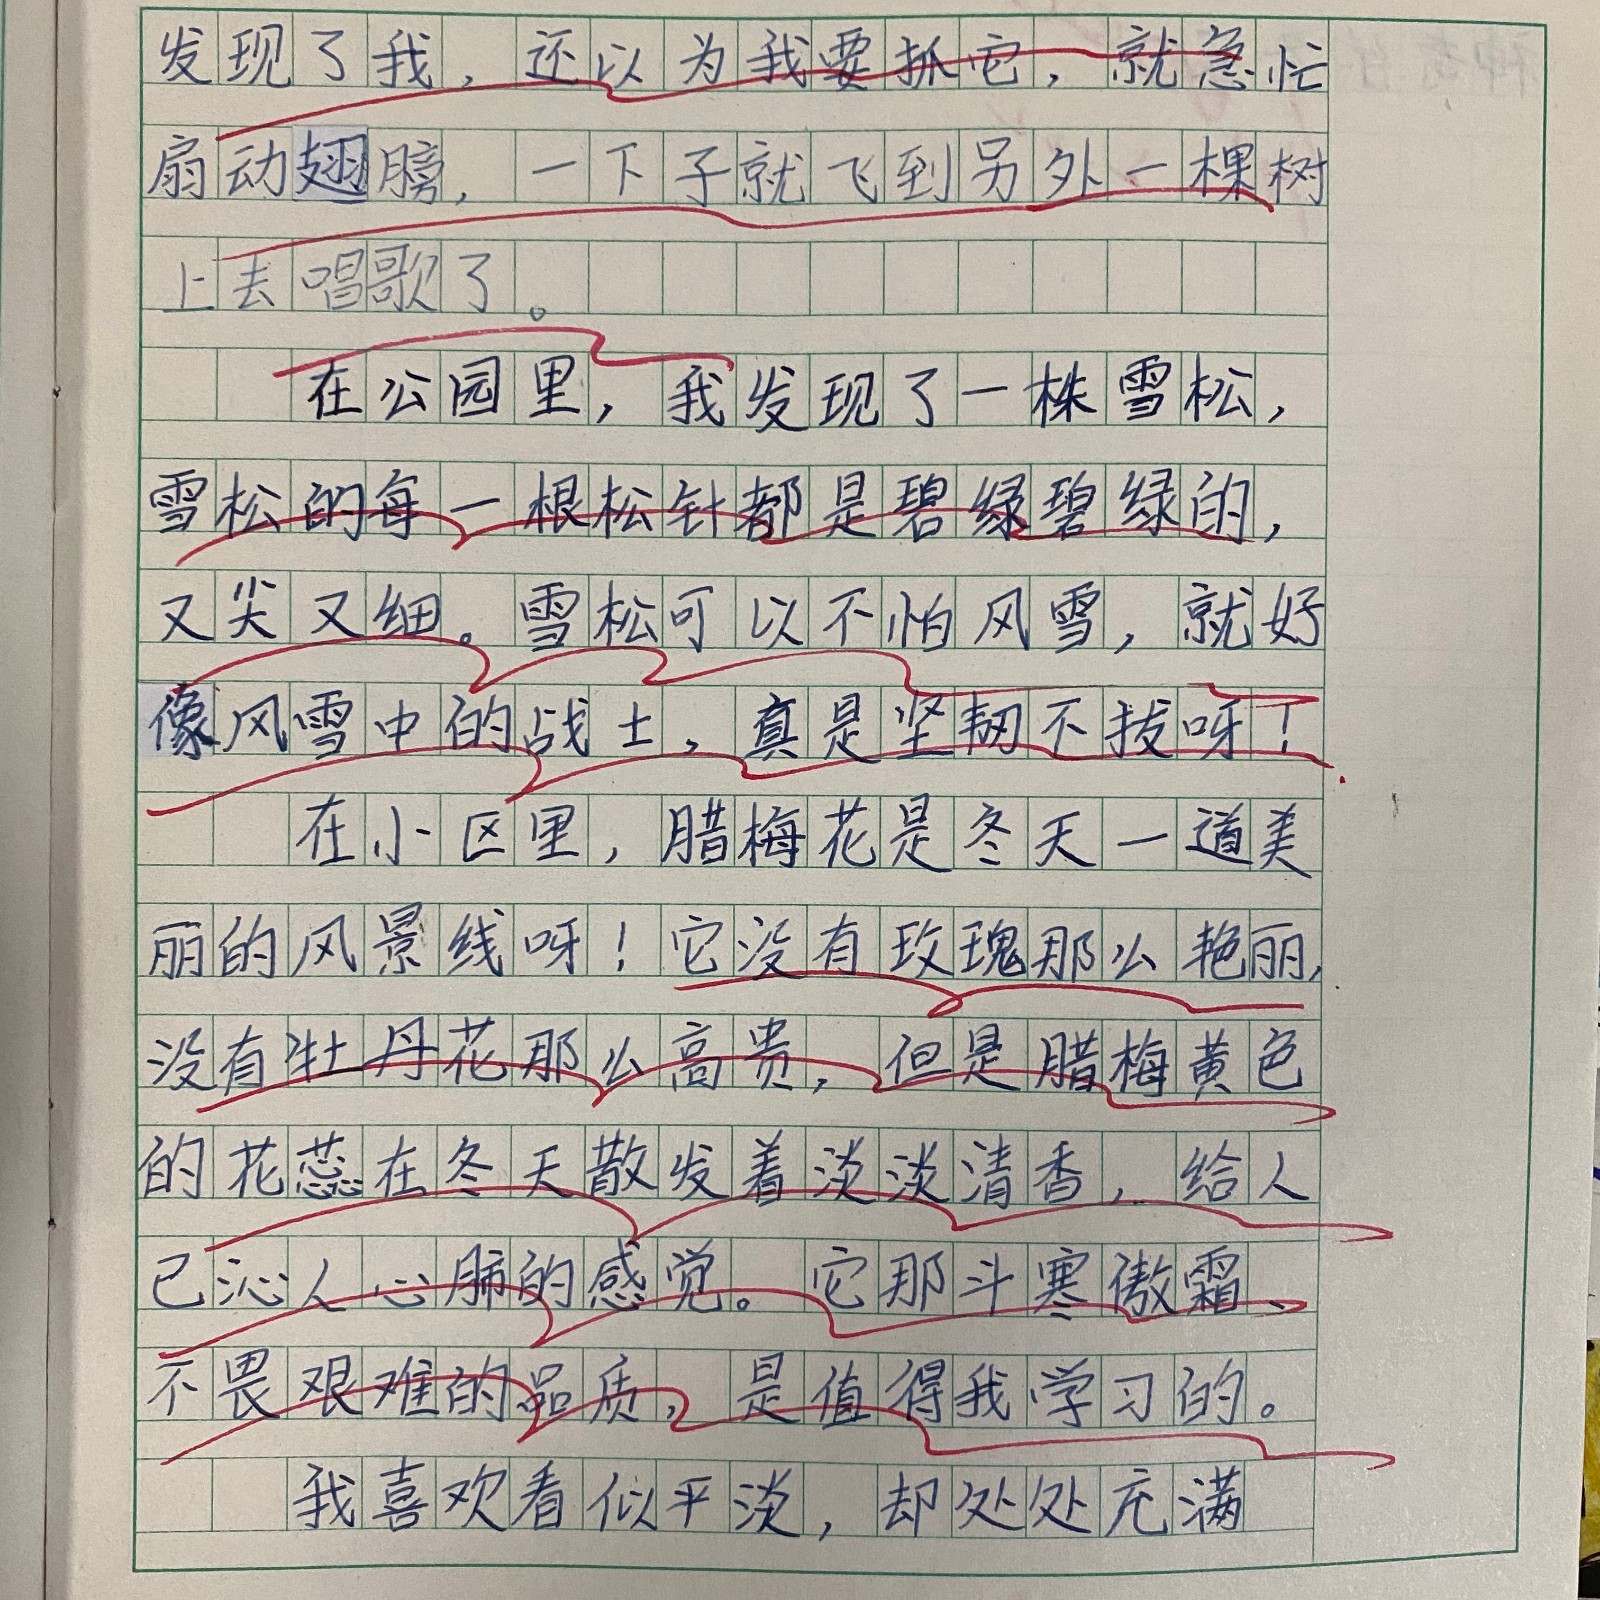 发现了我，还以为我要抓它，就急忙
扇动翅膀，一下子就飞到另外一棵树
上去唱歌了。
在公园里，我发现了一株雪松，
雪松的每一根松针都是碧绿碧绿的，
又尖又细。雪松可以不怕风雪，就好
像风雪中的战士，真是坚韧不拔呀！
在小区里，腊梅花是冬天一道美
丽的风景线呀！它没有玫瑰那么艳丽，
没有牡丹花那么高贵，但是腊梅黄色
的花蕊在冬天散发着淡淡清香，给人
己沁人心肺的感觉。它那斗寒傲霜、
不畏艰难的品质，是值得我学习的。
我喜欢看似平淡，却处处充满